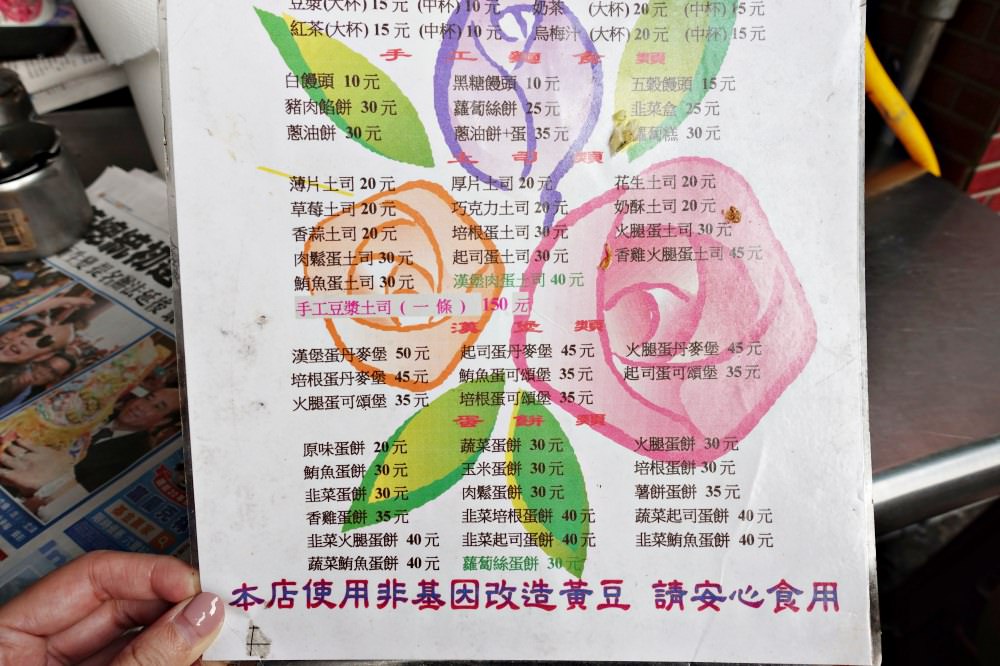 豆漿(大杯) 15 元 (中杯) 10 元 奶茶 (大杯) 20 元 (中杯) 15 元
紅茶(大杯) 15 元 (中杯) 10 元 烏梅汁 (大杯) 20 元 (中杯) 15 元
手工麵食類
白饅頭 10 元 黑糖饅頭 10 元 五穀饅頭 15 元
豬肉餡餅 30 元 蘿蔔絲餅 25 元 韭菜盒 25 元
蔥油餅 30 元 蔥油餅+蛋 35 元 蘿蔔糕 30 元
土司類
薄片土司 20 元 厚片土司 20 元 花生土司 20 元
草莓土司 20 元 巧克力土司 20 元 奶酥土司 20 元
香蒜土司 20 元 培根蛋土司 30 元 火腿蛋土司 30 元
肉鬆蛋土司 30 元 起司蛋土司 30 元 香雞火腿蛋土司 45 元
鮪魚蛋土司 30 元 漢堡肉蛋土司 40 元
手工豆漿土司 ( 一 條 ) 150 元
漢堡類
漢堡蛋丹麥堡 50 元 起司蛋丹麥堡 45 元 火腿蛋丹麥堡 45 元
培根蛋丹麥堡 45 元 鮪魚蛋可頌堡 35 元 起司蛋可頌堡 35 元
火腿蛋可頌堡 35 元 培根蛋可頌堡 35 元
蛋餅類
原味蛋餅 20 元 蔬菜蛋餅 30 元 火腿蛋餅 30 元
鮪魚蛋餅 30 元 玉米蛋餅 30 元 培根蛋餅 30 元
韭菜蛋餅 30 元 肉鬆蛋餅 30 元 薯餅蛋餅 35 元
香雞蛋餅 35 元 韭菜培根蛋餅 40 元 蔬菜起司蛋餅 40 元
韭菜火腿蛋餅 40 元 韭菜起司蛋餅 40 元 韭菜鮪魚蛋餅 40 元
蔬菜鮪魚蛋餅 40 元 蘿蔔絲蛋餅 30 元
本店使用非基因改造黃豆 請安心食用